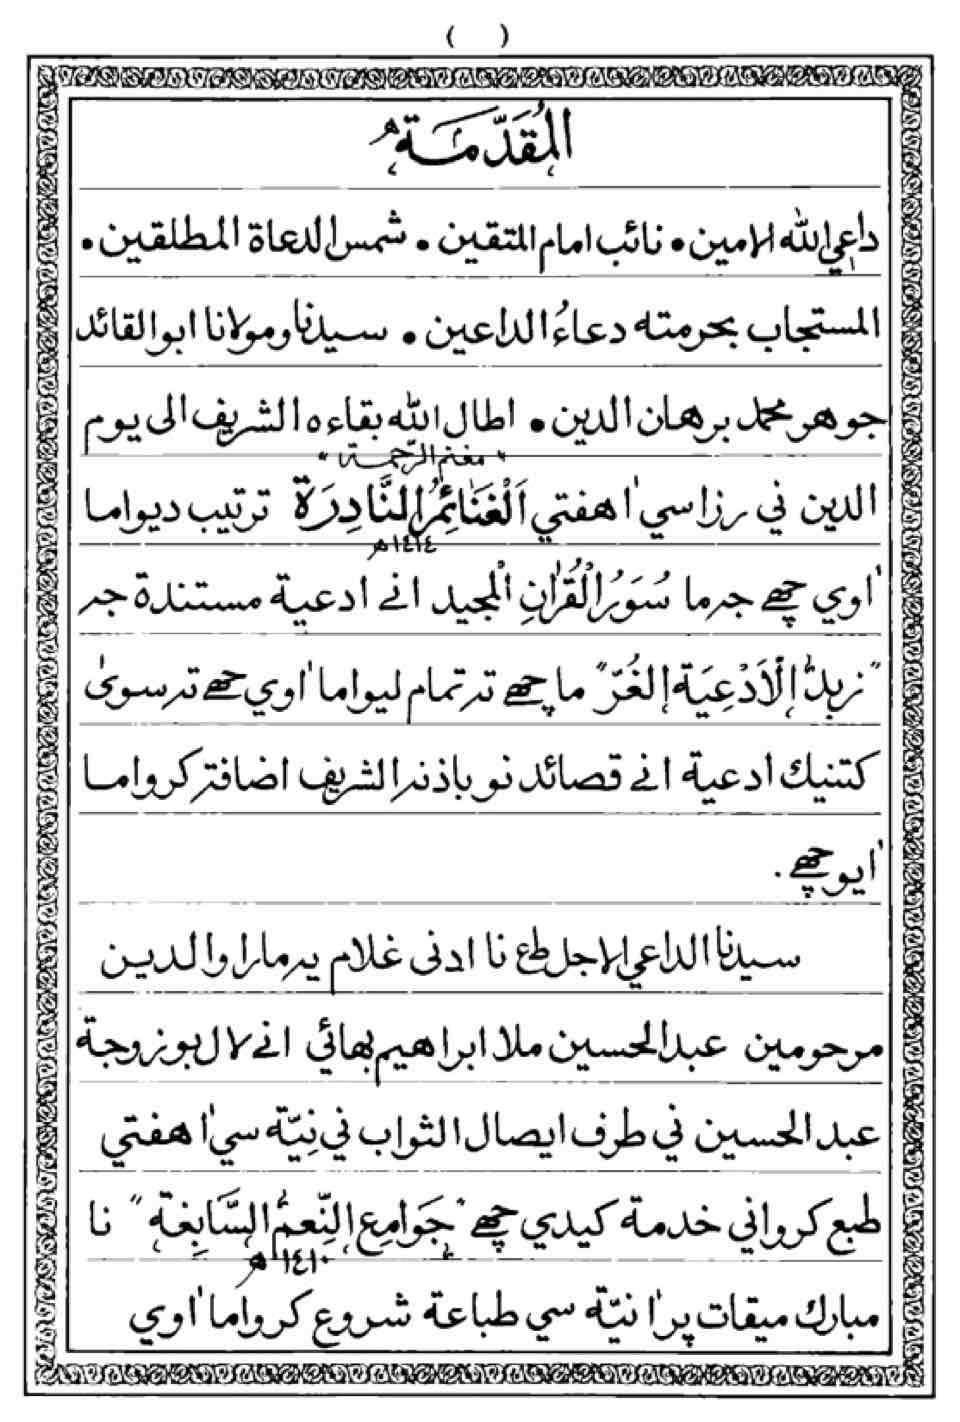 ( )
المُقَدَّمَة
داعي الله الامين • نائب امام المتقين • شمس الدعاة المطلقين •
المستجاب بحرمته دعاءُ الداعين • سيدنا ومولانا ابو القائد
جوهر محمد برهان الدين • اطال الله بقاءه الشريف الى يوم
" مغنم الرّحمة "
الدين ني رزا سي اٰ هفتي اَلْغَنَائِمُ النَّادِرَة ترتيب ديواما
١٤١٤ه
اٰوي چھے جہ ما سُوَرُ الْقُرْاٰنِ الْمجيد انے ادعية مستندة جہ
"زبدُ الْاَدْعِيَة الغُرّ" ما چھے تہ تمام ليواما اٰوي چھے تہ سویٰ
كتنيك ادعية انے قصائد نو باذنہ الشريف اضافة كرواما
اٰيو چھے .
سيدنا الداعي الاجل طع نا ادنى غلام يہ مارا والدين
مرحومين عبد الحسين ملا ابراهيم بھائي انے لال بو زوجة
عبد الحسين ني طرف ايصال الثواب ني نِيّة سي اٰ هفتي
طبع كرواني خدمة كيدي چھے "جَوَامِع النِّعَمُ السَّابِغَة" نا
١٤١٠ ه
مبارك ميقات پر اٰ نيّة سي طباعة شروع كرواما اٰوي